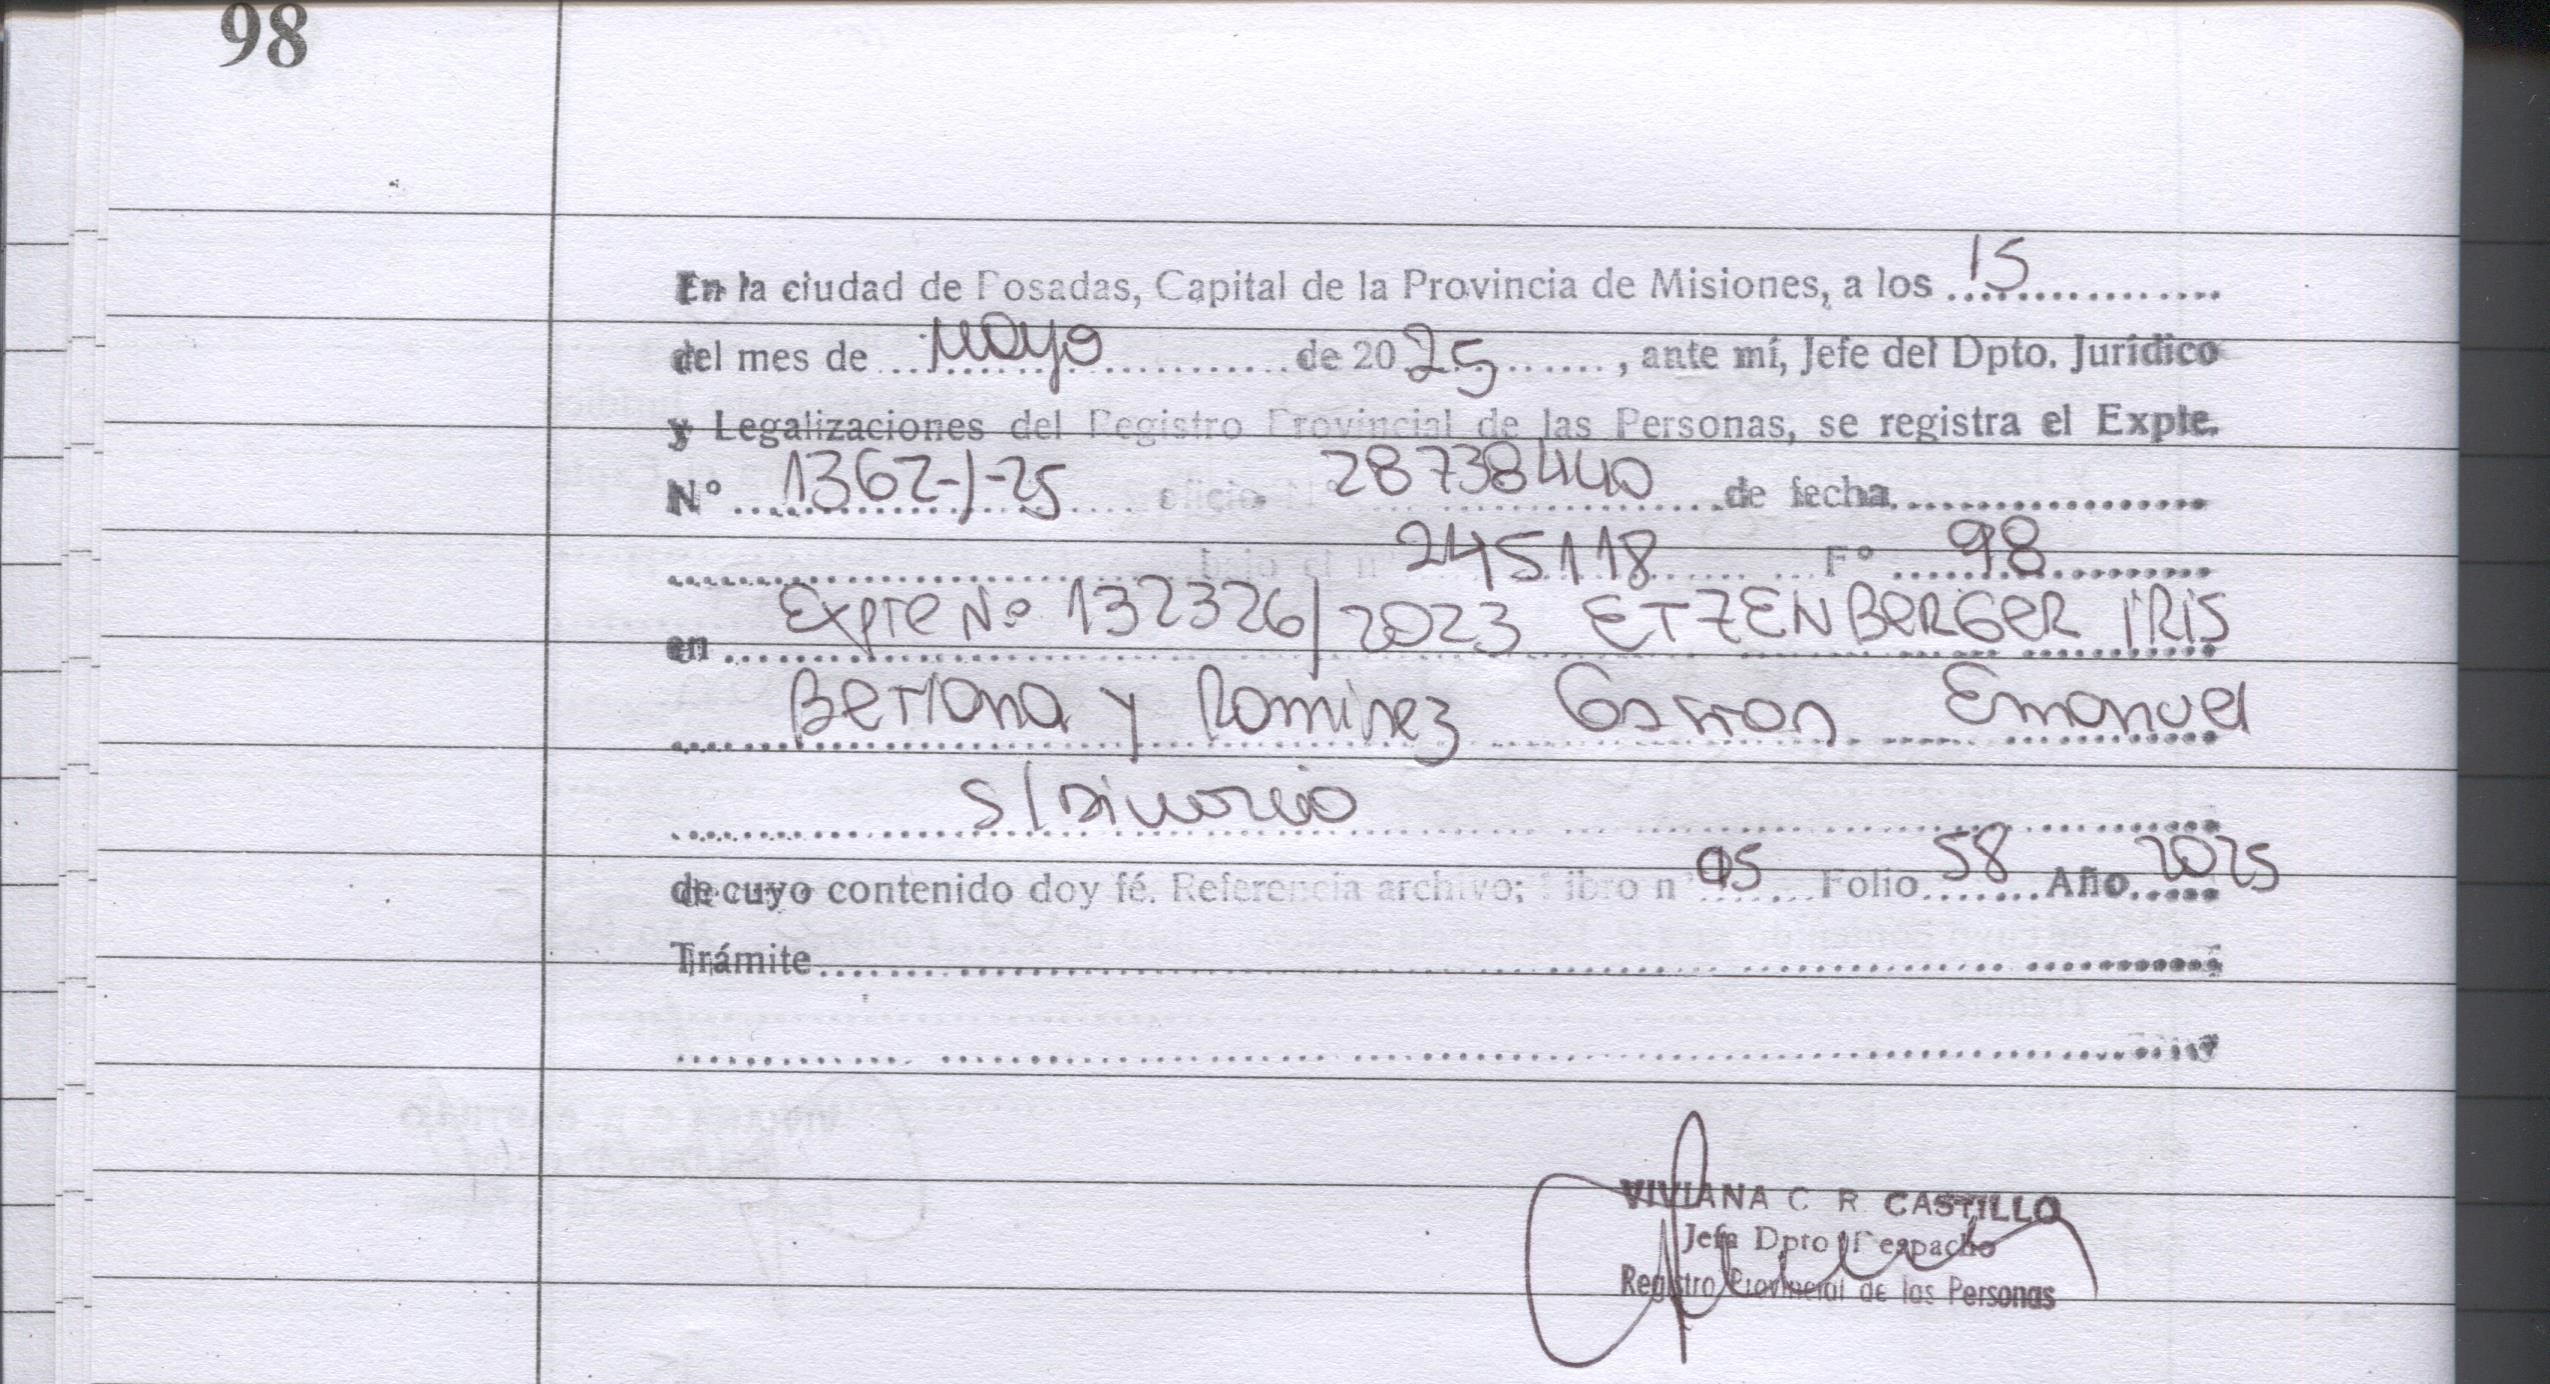 98
En la ciudad de Posadas, Capital de la Provincia de Misiones, a los 15
del mes de Mayo de 2025, ante mí, Jefe del Dpto. Jurídico
y Legalizaciones del Registro Provincial de las Personas, se registra el Expte.
N° 1362-J-25 oficio N° 28738440 de fecha
bajo el n° 245118 F° 98
en Expte N° 132326/2023 ETZENBERGER IRIS
Betiana y Ramirez Gaston Emanuel
s/ Divorcio
de cuyo contenido doy fé. Referencia archivo; Libro n° 05 Folio 58 Año 2025
Trámite
VIVIANA C R CASTILLO
Jefa Dpto Despacho
Registro Provincial de las Personas